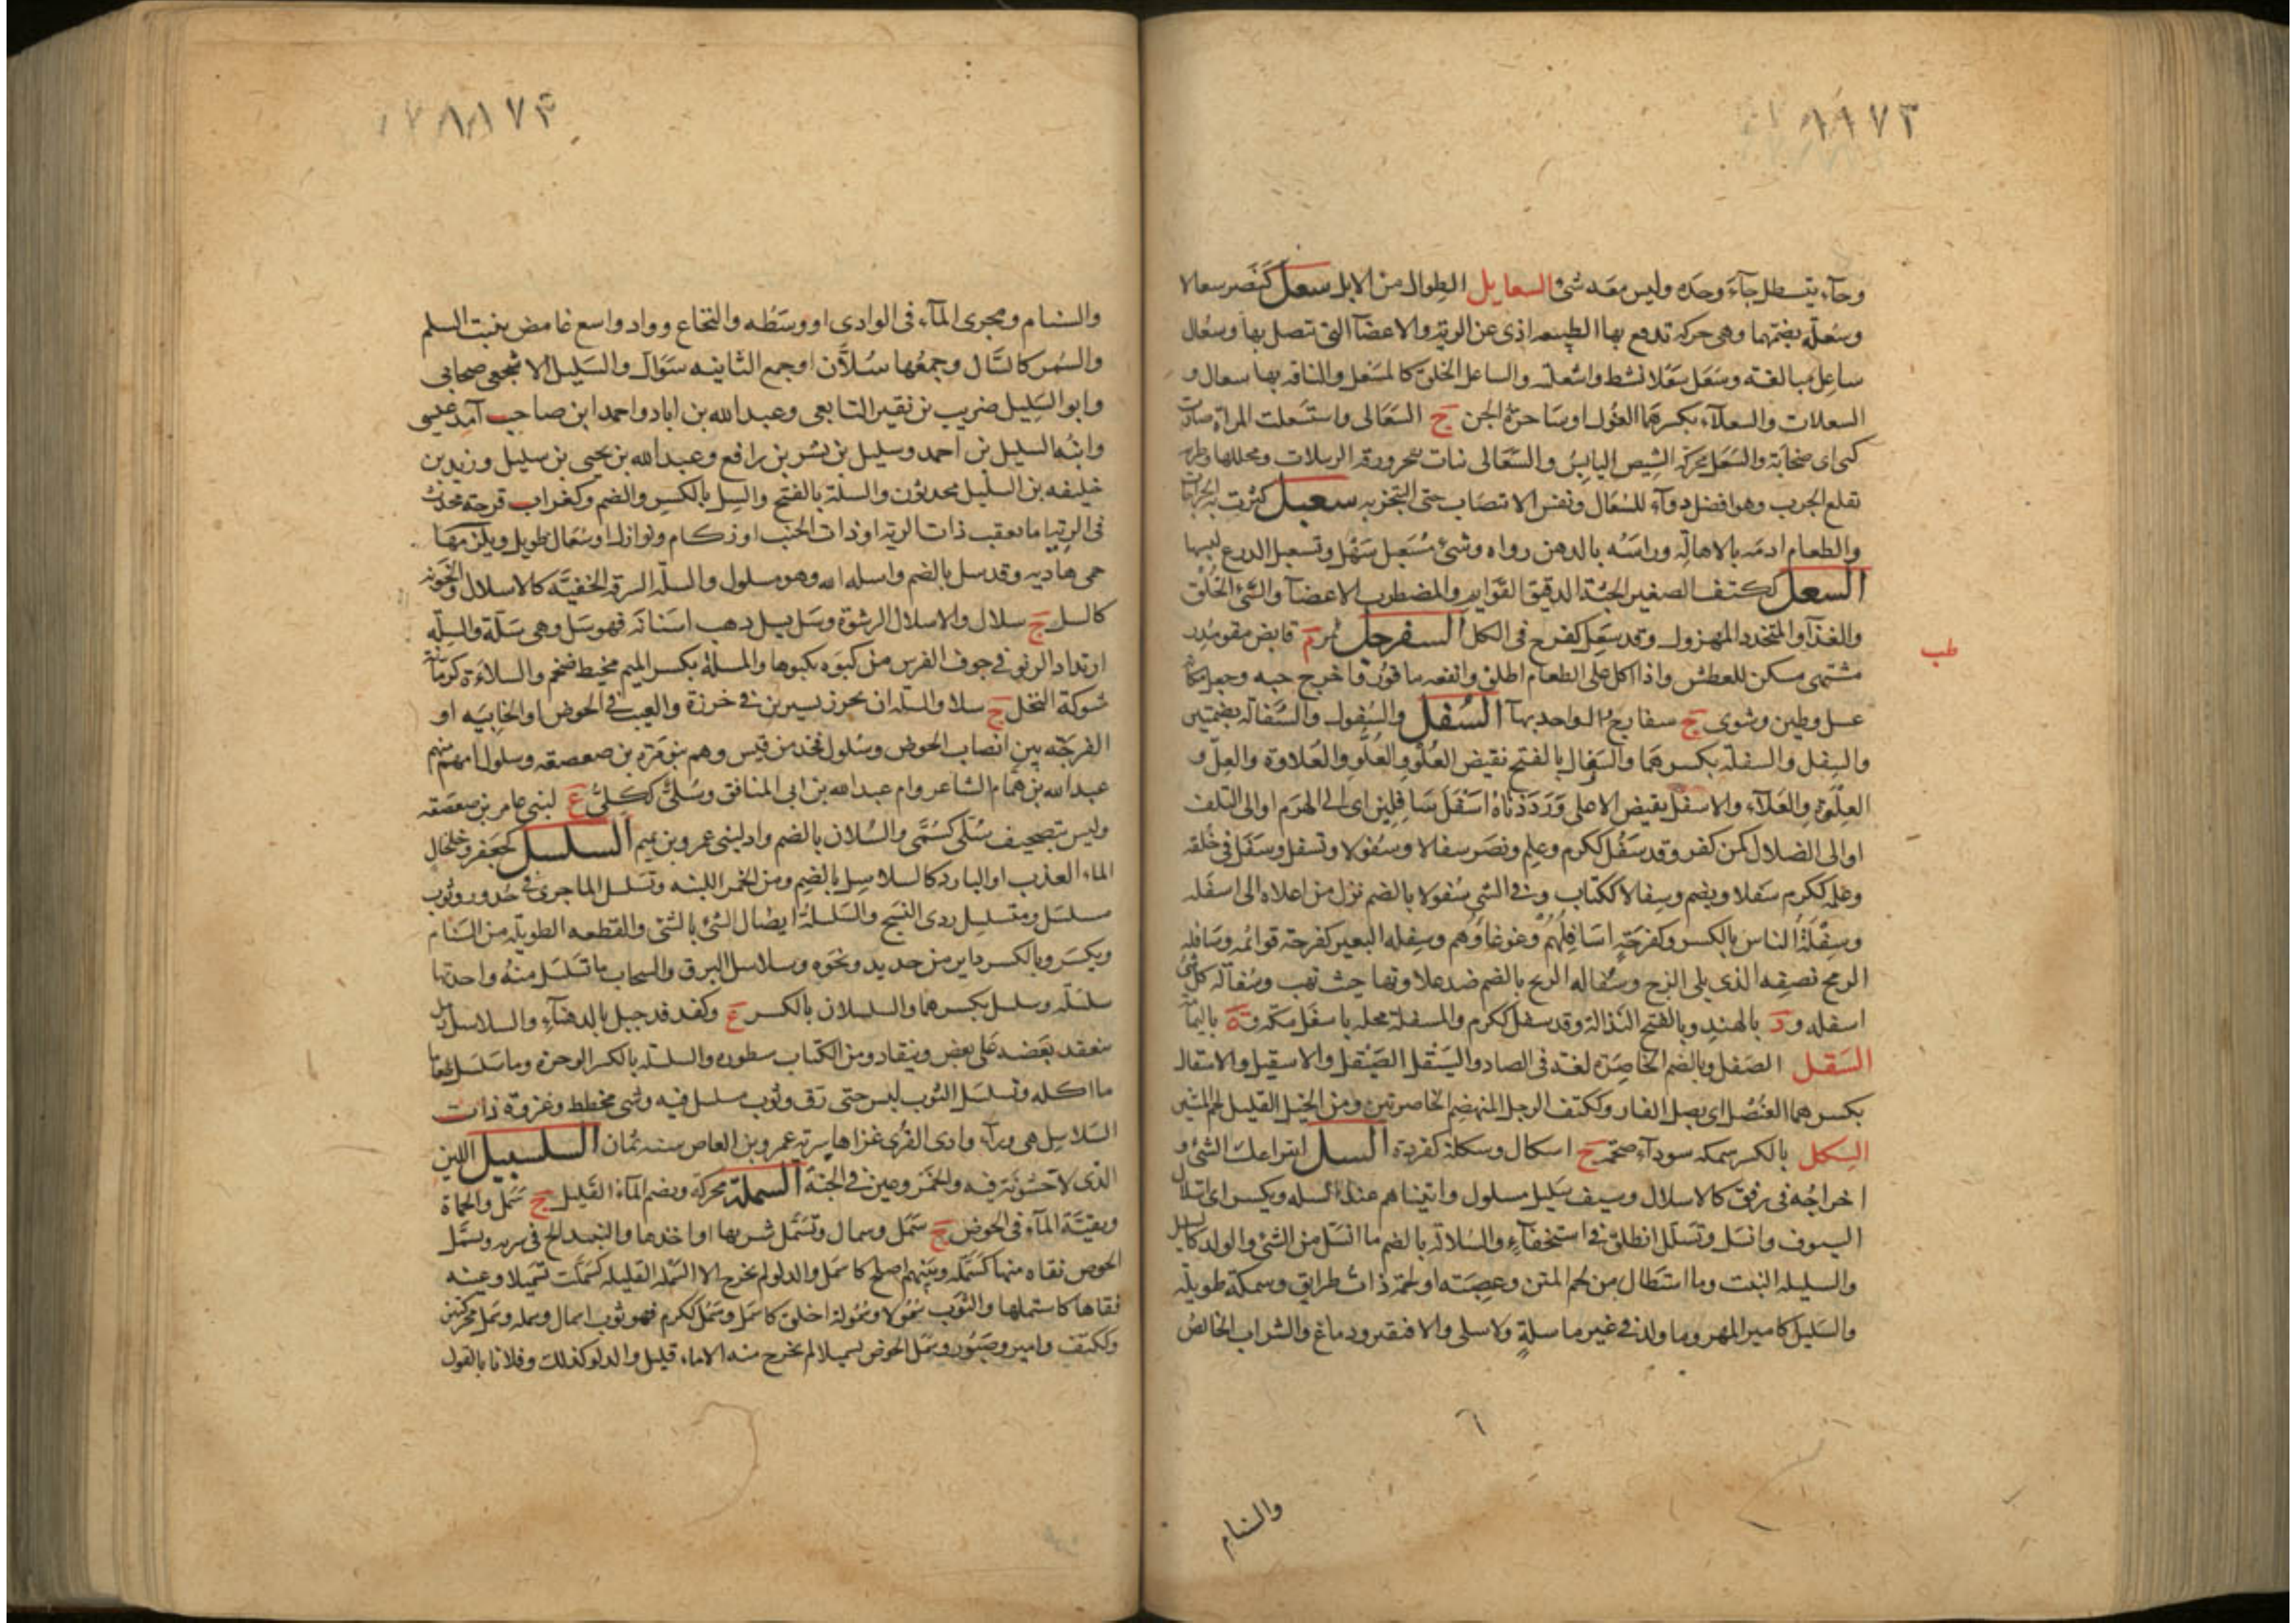 ٨٨٧٣
وجاء يتسطل جاء وحده وليس معه شئ والسعابل الطوال من الابل سعل كنصر سعالا
وسعلة بضمهما وهى حركة تدفع بها الطبيعة اذى عن الرية والاعضاء التى تتصل بها وسعال
ساعل مبالغة وسعل سعلا نشط واسعله والساعل الحلق كالمسعل والناقة بها سعال و
السعلات والسعلاء بكسرهما الغول او ساحرة الجن ج السعالى واستسعلت المراة صارت
كهى اى صخابة والسعل محركة الشيص اليابس والسعالى نبات
تقلع الجرب وهو افضل دواء للسعال ونفس الانتصاب حتى التبخر به سعبل
والطعام ادمه بالاهالة وراسه بالدهن رواه وشئ مسغبل سهل وتسغبل الدرع لبسها
السغل ككتف الصغير الجثة الدقيق القوايم والمضطرب الاعضاء والسئ الخلق
والغذاء والمتخدد المهزول وقد سغل كفرح فى الكل السفرجل ثمر م قابض مقو مدر
مشتهى مسكن للعطش واذا اكل على الطعام اطلق وانفعه ما قور فاخرج حبه وجعل مكانه
عسل وطين وشوى ج سفارج الواحد بهاء السفل والسفول والسفالة بضمتين
والسفل والسفلة بكسرهما والسفال بالفتح نقيض العلو والعلو والعلاوة والعلو
العلوة والعلاء والاسفل نقيض الاعلى ورددناه اسفل سافلين اى الى الهرم او الى التلف
او الى الضلال لمن كفر وقد سفل ككرم وعلم ونصر سفالا وسفولا وتسفل وسفل فى خلقه
وعلمه ككرم سفلا ويضم وسفالا ككتاب وفى الشئ سفولا بالضم نزل من اعلاه الى اسفله
وسفلة الناس بالكسر وكفرحة اسافلهم وغوغاؤهم وسفلة البعير كفرحة قوائمه وسافلة
الرمح نصفه الذى يلى الزج وسفالة الريح بالضم ضد علاوتها حيث تهب وسفالة كل شئ
اسفله ود بالهند وبالفتح النذالة وقد سفل ككرم والمسفلة محلة باسفل مكة وة باليمامة
السقل الصقل وبالضم الخاصرة لغة فى الصاد والسيقل الصيقل والاسقيل والاسقال
بكسرهما العنصل اى بصل الفار وككتف الرجل المنهضم الخاصرتين ومن الخيل القليل لحم المتنين
السكل بالكسر سمكة سوداء ضخمة ج اسكال وسكلة كقردة السل انتزاعك الشئ و
اخراجه فى رفق كالاسلال وسيف سليل مسلول واتيناهم عند السلة ويكسر اى استلال
السيوف وانسل وتسلل انطلق فى استخفاء والسلالة بالضم ما انسل من الشئ والولد كالسليل
والسليلة البنت وما استطال من لحم المتن وعصبة او لحمة ذات طرايق وسمكة طويلة
والسليل كامير المهر وما ولد فى غير ماسلة ولا سلى والا فبقير ودماغ والشراب الخالص
والسنام
طب
٨٨٧٣
والسنام ومجرى الماء فى الوادى او وسطه والنخاع وواد واسع غامض ينبت السلم
والسمر كالسال وجمعها سلان او جمع الثانية سوال والسليل الاشجعى صحابى
وابو السليل ضريب بن نقير التابعى وعبد الله بن اياد واحمد ابن صاحب آمد عيسى
وابنه السليل بن احمد وسليل بن بشر بن رافع وعبد الله بن يحيى بن سليل وزيد بن
خليفه بن السليل محدثون والسلة بالفتح والسل بالكسر والضم وكغراب قرحة تحدث
فى الرية اما تعقب ذات الرية او ذات الجنب او زكام ونوازل او سعال طويل ويلزمها
حمى هادية وقد سل بالضم واسله الله وهو مسلول والسلة السرقة الخفية كالاسلال والجونة
كالسل ج سلال والاسلال الرشوة وسل يسل ذهب اسنانه فهو سل وهى سلة والسلة
ارتداد الربو فى جوف الفرس من كبوة يكبوها والمسلة بكسر الميم مخيط ضخم والسلاءة كرمانة
شوكة النخل ج سلا والسلة ان يخرز سيرين فى خرزة والعيب فى الحوض او الخابية او
الفرجة بين انصاب الحوض وسلول فخذ من قيس وهم بنو مرة بن صعصعه وسلول امهم منهم
عبد الله بن همام الشاعر وام عبد الله بن ابى المنافق وسلى ككلى ع لبنى عامر بن صعصعه
وليس بتصحيف سلى كسمى والسلان بالضم واد لبنى عمرو بن تميم السلسل كجعفر وخلخال
الماء العذب او البارد كالسلاسل بالضم ومن الخمر اللينة وتسلسل الما جرى فى حدور وثوب
مسلسل ومتسلسل ردى النسج والسلسلة ايصال الشئ بالشئ والقطعه الطويلة من السنام
ويكسر وبالكسر داير من حديد ونحوه وسلاسل البرق والسحاب ما تسلسل منه واحدتها
سلسلة وسلسل بكسرهما والسلسلان بالكسر ع وكفدفد جبل بالدهناء والسلاسل رمل
منعقد بعضه على بعض وينقاد ومن الكتاب سطوره والسلسلة بالكسر الوحرة وما سلسل طعاما
ما اكله وتسلسل الثوب لبس حتى رق وثوب مسلسل فيه وشى مخطط وغزوة ذات
السلاسل هى وراء وادى القرى غزاها سرية عمرو بن العاص سنة ثمان السلسبيل اللين
الذى لا خشونة فيه والخمر وعين فى الجنة السملة محركة ويضم الماء القليل ج سمل والحماة
وبقية الماء فى الحوض ج سمل وسمال وتسمل شربها او اخذها والنبيذ الح فى شربه وسمل
الحوض نقاه منها كسمله وبينهم اصلح كاسمل والدلو لم تخرج الا السملة القليلة كسملت تسميلا وعينه
فقاها كاستملها والثوب سمولا وسمولة اخلق كاسمل وسمل ككرم فهو ثوب اسمال وسملة وسمل محركتين
وككتف وامير وصبور وسمل الحوض تسميلا لم يخرج منه الا ماء قليل والدلو كذلك وفلانا بالقول